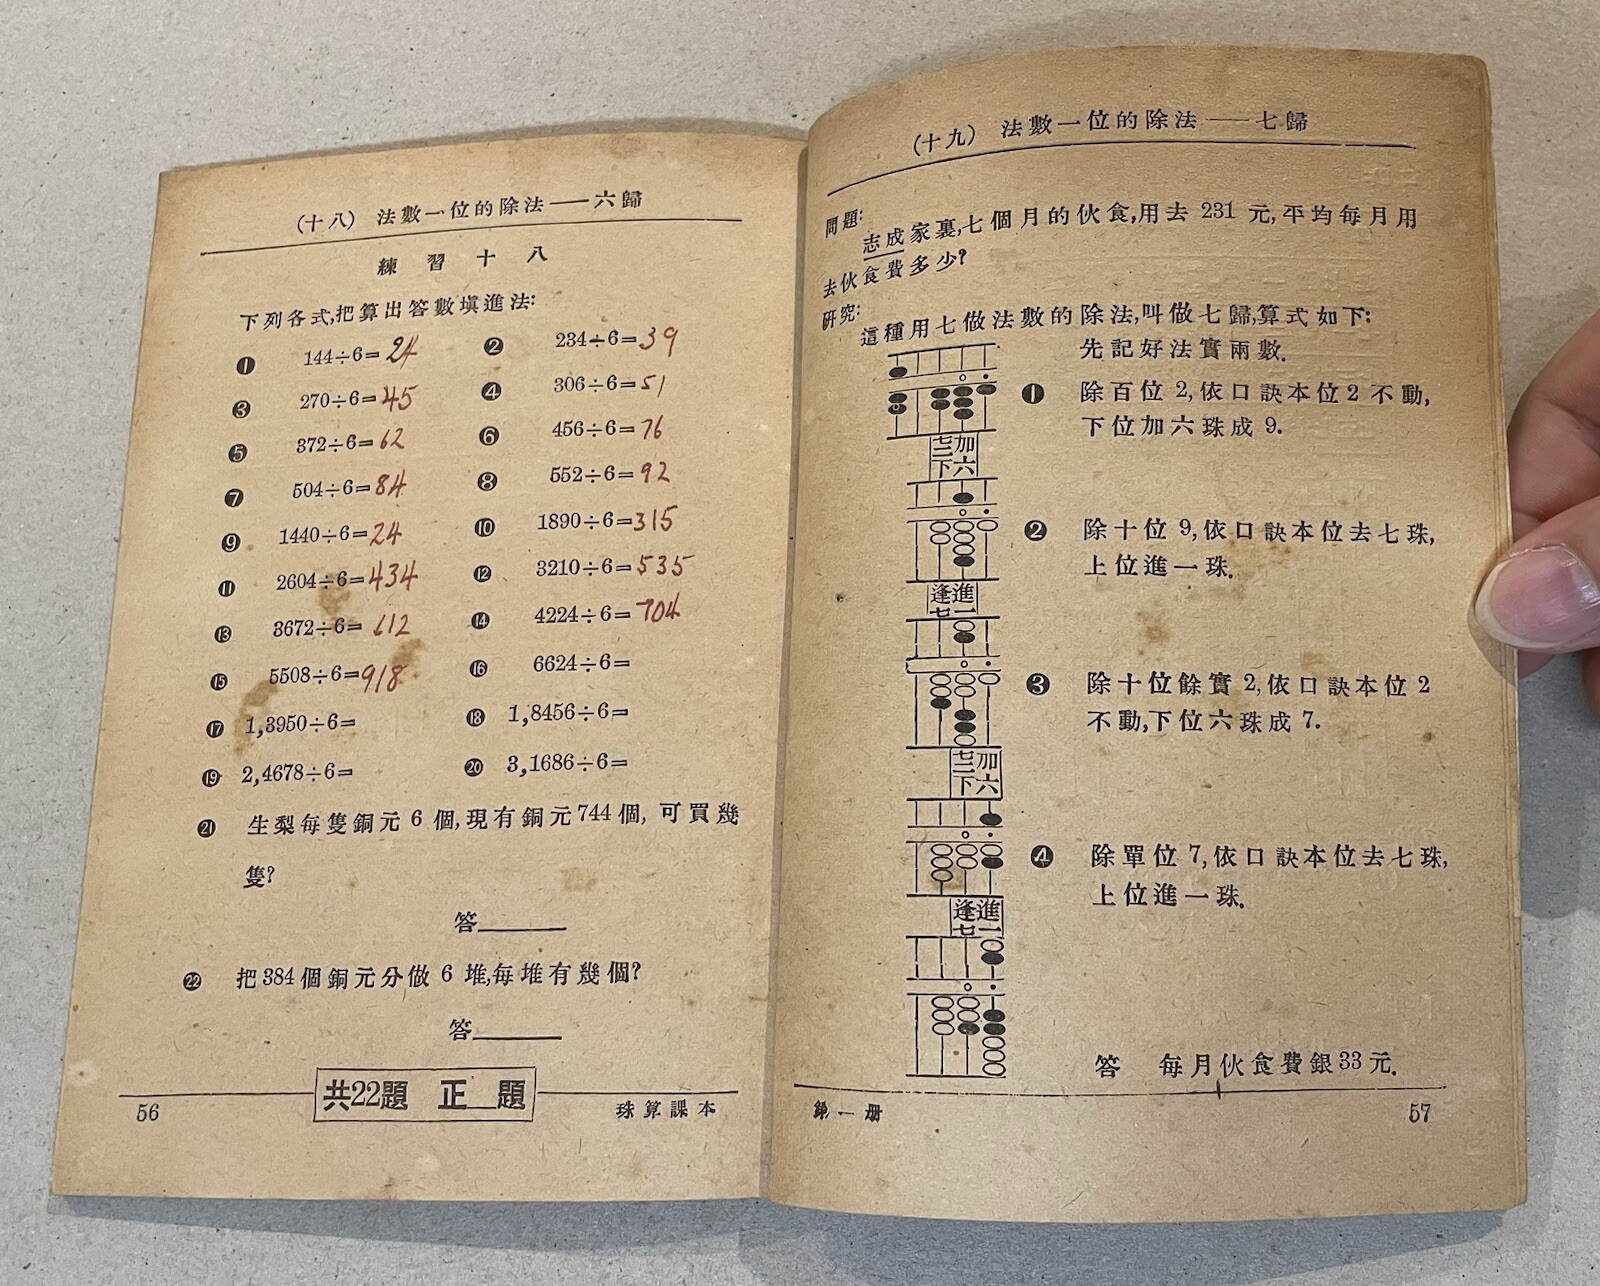 (十八) 法數一位的除法——六歸
練習十八
下列各式,把算出答數填進法:
❶ 144÷6=24
❷ 234÷6=39
❸ 270÷6=45
❹ 306÷6=51
❺ 372÷6=62
❻ 456÷6=76
❼ 504÷6=84
❽ 552÷6=92
❾ 1440÷6=24
❿ 1890÷6=315
⓫ 2604÷6=434
⓬ 3210÷6=535
⓭ 3672÷6=612
⓮ 4224÷6=704
⓯ 5508÷6=918
⓰ 6624÷6=
⓱ 1,3950÷6=
⓲ 1,8456÷6=
⓳ 2,4678÷6=
⓴ 3,1686÷6=
㉑ 生梨每隻銅元6個,現有銅元744個,可買幾
隻?
答
㉒ 把384個銅元分做6堆,每堆有幾個?
答
共22題 正 題
56
珠算課本
(十九) 法數一位的除法——七歸
問題:
志成家裏,七個月的伙食,用去231元,平均每月用
去伙食費多少?
研究:
這種用七做法數的除法,叫做七歸,算式如下:
先記好法實兩數.
❶ 除百位2,依口訣本位2不動,
下位加六珠成9.
七二下加六
❷ 除十位9,依口訣本位去七珠,
上位進一珠.
逢七進一
❸ 除十位餘實2,依口訣本位2
不動,下位六珠成7.
七二下加六
❹ 除單位7,依口訣本位去七珠,
上位進一珠.
逢七進一
答 每月伙食費銀33元.
第一册
57